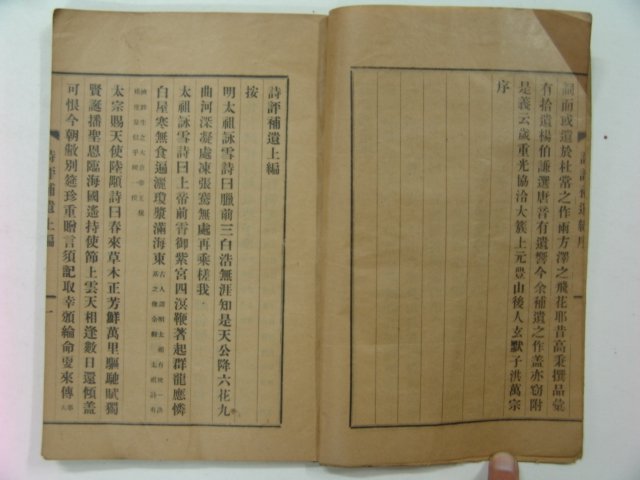 嗣而或遺於杜常之作雨方澤之飛花耶昔高秉撰品彙
有拾遺楊伯謙選唐音有遺響今余補遺之作盖亦窃附
是義云歲重光協洽大簇上元豊山後人玄默子洪萬宗
序
詩評補遺上編
按
明太祖詠雪詩曰臘前三白浩無涯知是天公降六花九
曲河深凝處凍張騫無處再乘槎我
太祖詠雪詩曰上帝前宵御紫宮四溟鞭著起群龍應憐
白屋寒無食遍灑瓊漿滿海東
太宗賜天使陸顒詩曰春來草木正芳鮮萬里驅馳賦獨
賢誕播聖恩臨海國遙持使節上雲天相逢數日還傾盖
可恨今朝敵別筵珍重贈言須記取幸頒綸命要來傳
詩評補遺上編
一